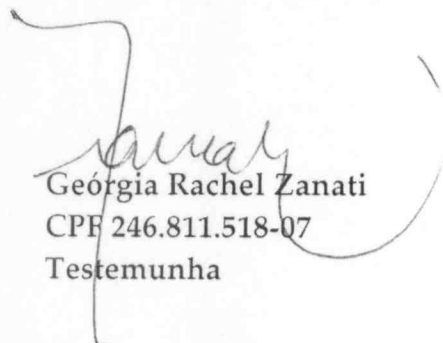 Geórgia Rachel Zanati
CPF 246.811.518-07
Testemunha